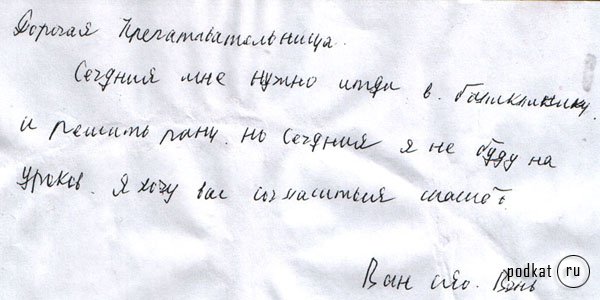 Дорогая Препатавательница.
Сегдния мне нужно итди в. балклинику.
и решить рану. но Сегдния я не буду на
уроков. я хочу вас согласиться
Ван сяо. Вэнь
podkat ru